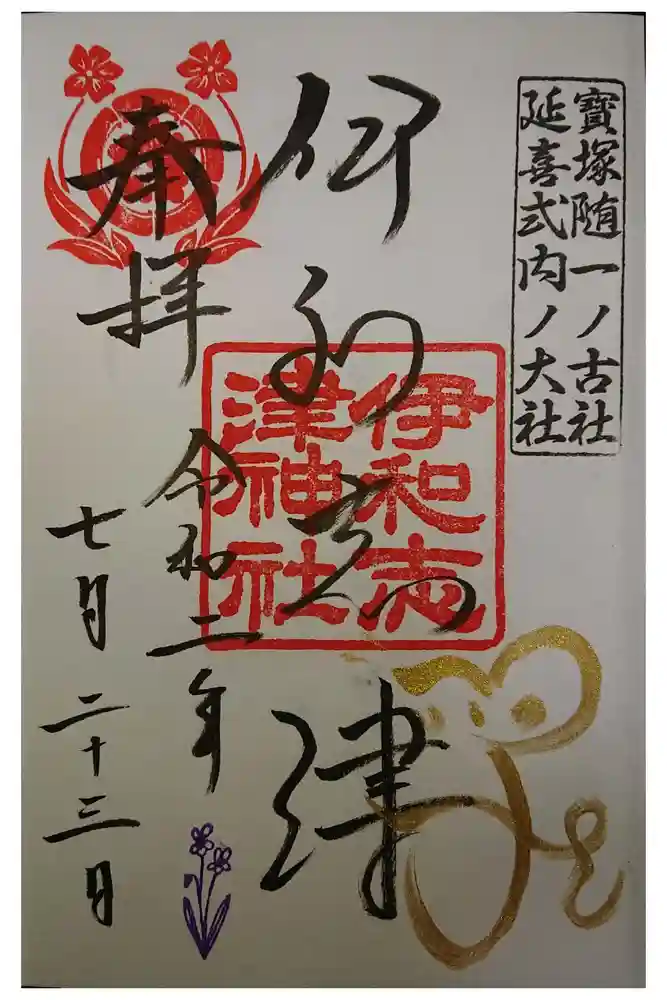 寶塚随一ノ古社
延喜式内ノ大社
伊和志津
伊和志
津神社
奉拝
令和二年
七月二十三日